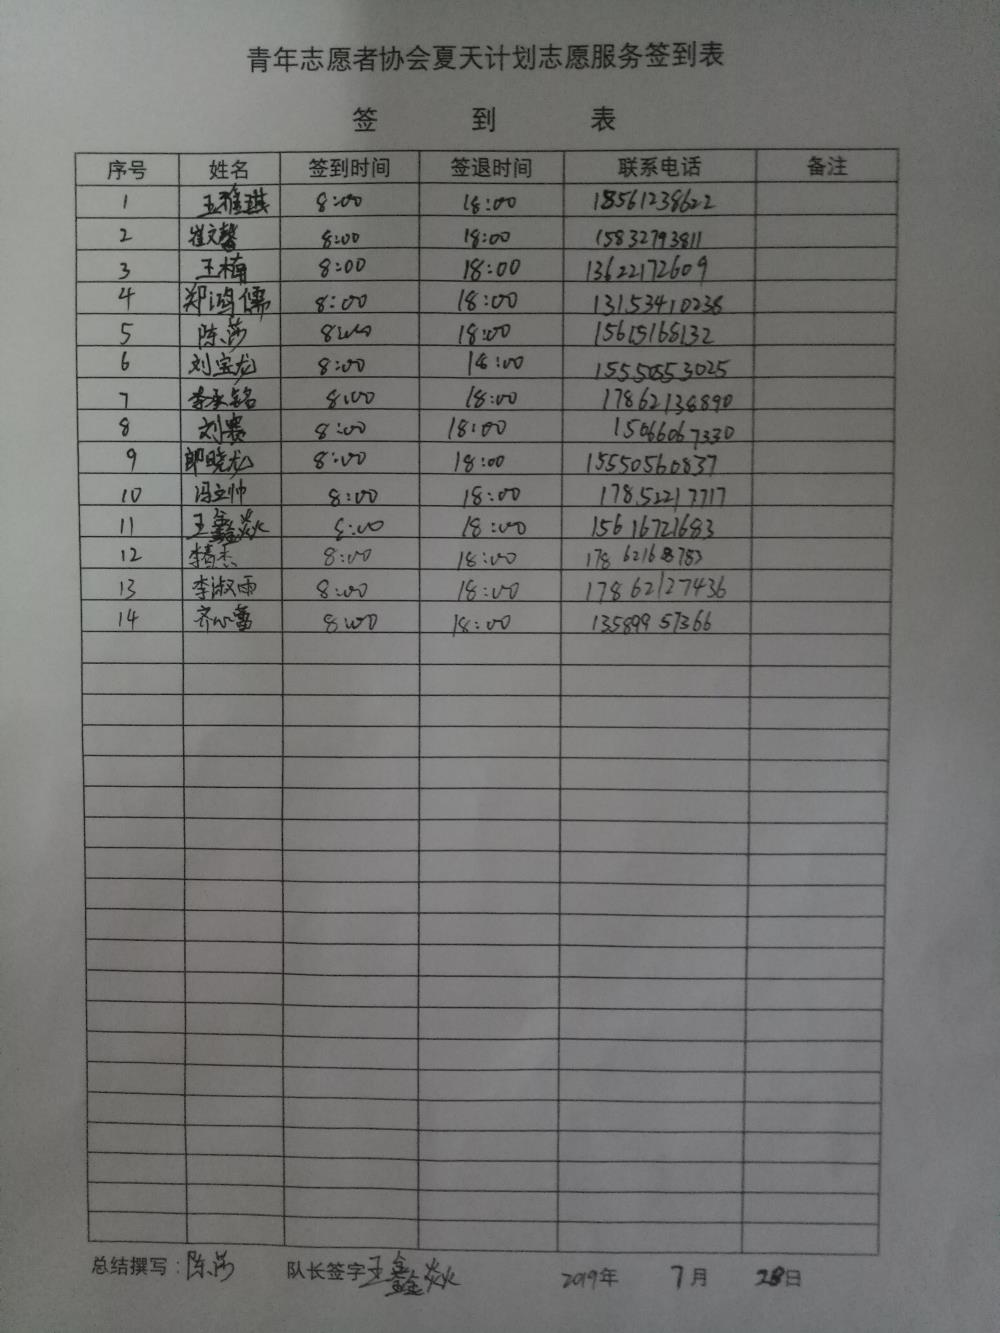 青年志愿者协会夏天计划志愿服务签到表
签 到 表
序号 姓名 签到时间 签退时间 联系电话 备注
1 王雅琪 8:00 18:00 18561238622
2 崔文馨 8:00 18:00 15832793811
3 王楠 8:00 18:00 13622172609
4 郑鸿儒 8:00 18:00 13153410238
5 陈莎 8:00 18:00 15615168132
6 刘宝龙 8:00 18:00 15550553025
7 李承铭 8:00 18:00 17862138890
8 刘赛 8:00 18:00 15066067330
9 郎晓龙 8:00 18:00 15550560837
10 冯立帅 8:00 18:00 17852217717
11 王鑫焱 8:00 18:00 15616721683
12 8:00 18:00 17862168783
13 李淑雨 8:00 18:00 17862127436
14 齐心蕾 8:00 18:00 13589957366
总结撰写:陈莎 队长签字王鑫焱 2019年 7月 28日